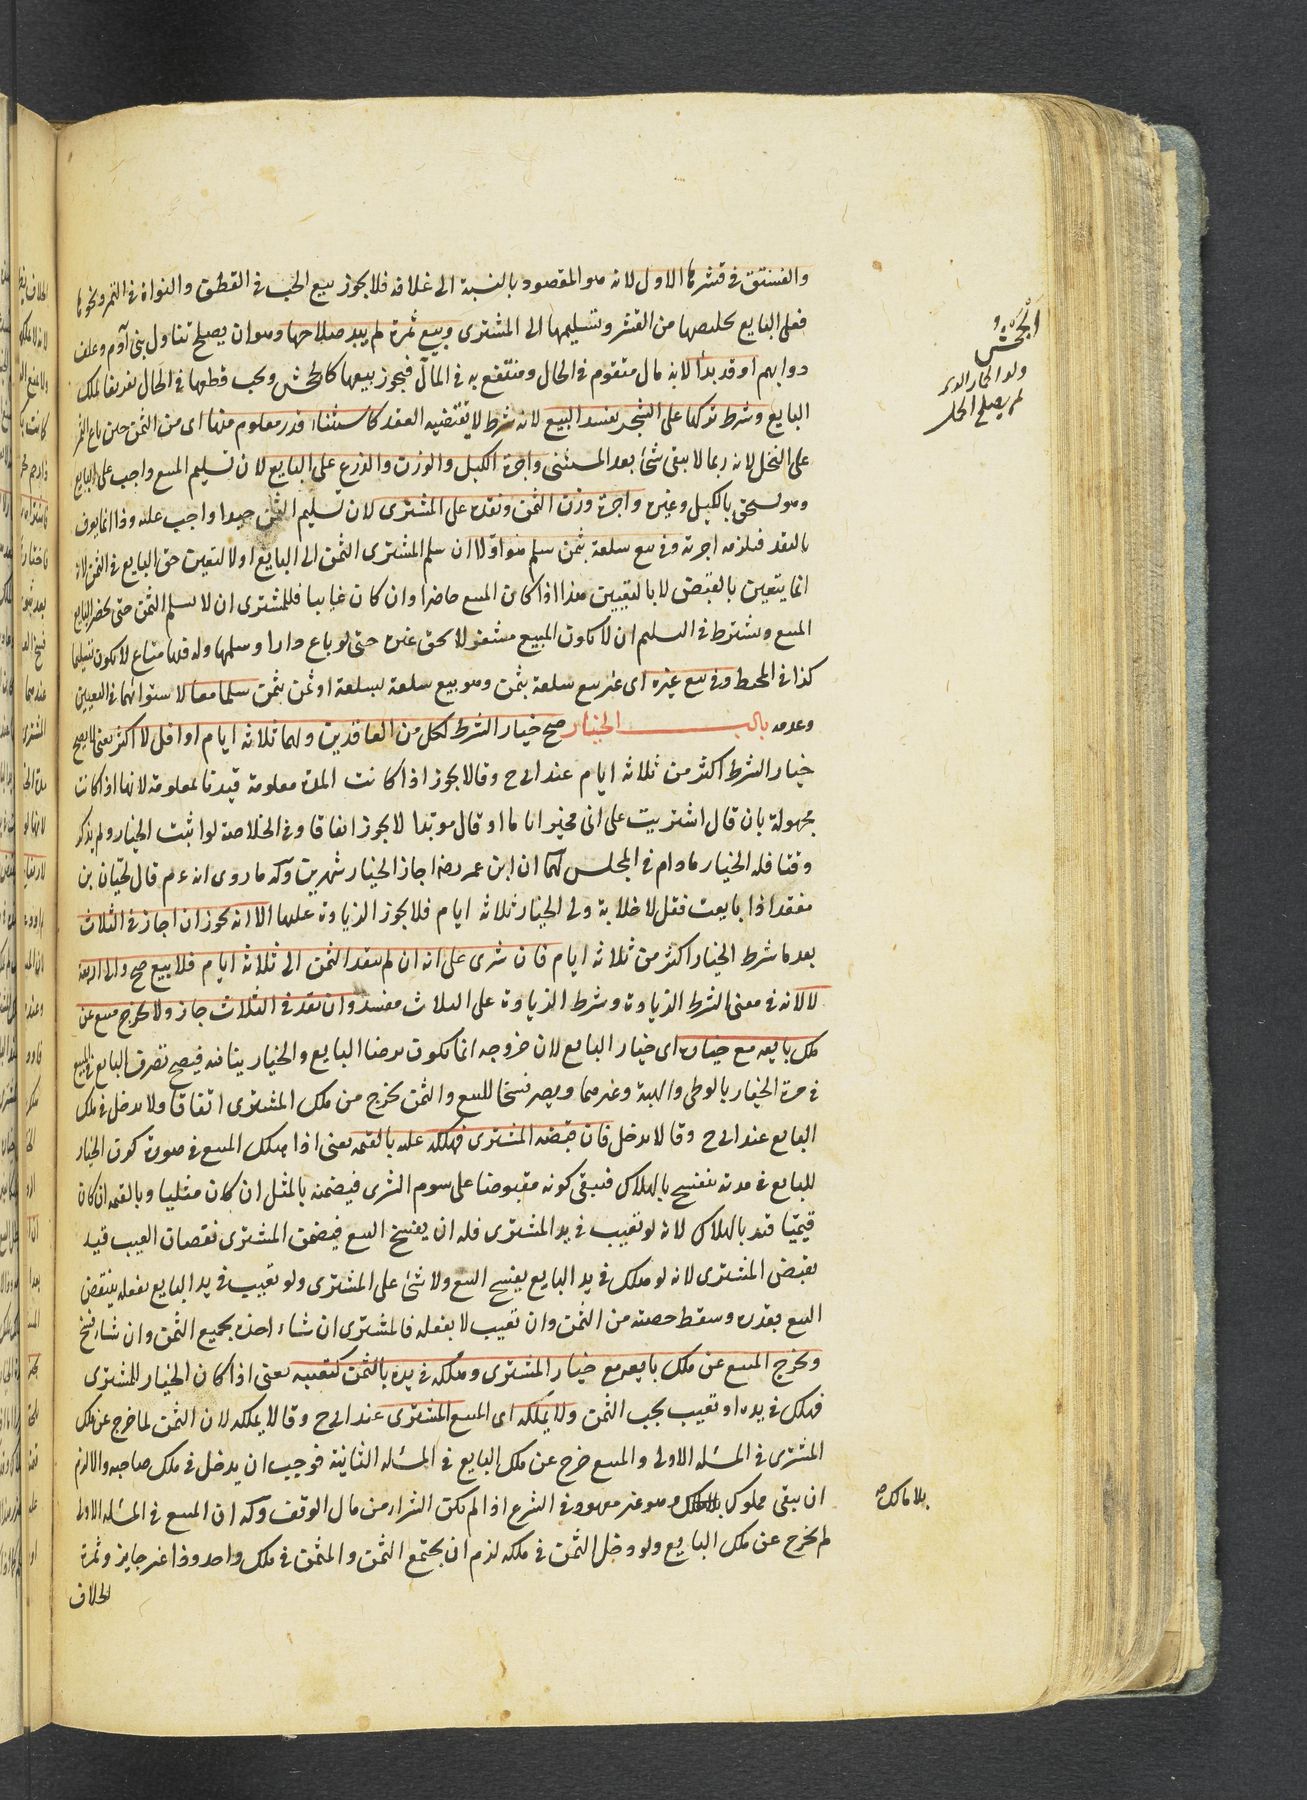 والفستق في قشرها الاول لانه هو المقصود بالنسبة الى غلافه فلا يجوز بيع الحب في القطن والنواة في التمر ونحوها
فعلى البايع تخليصها من القشر وتسليمها الى المشترى وبيع ثمرة لم يبد صلاحها وهو ان يصلح تناول بنى آدم وعلف
دوابهم او قد بدا لانه مال متقوم في الحال ومنتفع به في المآل فيجوز بيعها كالجحش ويجب قطعها في الحال تفريغا لملك
البايع وشرط تركها على الشجر يفسد البيع لانه شرط لا يقتضيه العقد كاستثناء قدر معلوم منها اى من الثمن حين باع الثمر
على النخل لانه ربما لا يبقى شئ بعد المستثنى واجرة الكيل والوزن والذرع على البايع لان تسليم المبيع واجب على البايع
وهو يتحقق بالكيل وغيره واجرة وزن الثمن ونقده على المشترى لان تسليم الثمن جيدا واجب عليه وذا انما يعرف
بالنقد فيلزمه اجرته وفي بيع سلعة بثمن سلم هو اولا ان سلم المشترى الثمن الى البايع اولا لتعين حق البايع في الثمن لانه
انما يتعين بالقبض لا بالتعيين هذا اذا كان المبيع حاضرا وان كان غايبا فللمشترى ان لا يسلم الثمن حتى يحضر البايع
المبيع ويشترط في التسليم ان لا يكون المبيع مشغولا بحق غيره حتى لو باع دارا وسلمها وله فيها متاع لا يكون تسليما
كذا في المحيط وفي بيع غيره اى غير بيع سلعة بثمن وهو بيع سلعة بسلعة او ثمن بثمن سلما معا لاستوائهما في التعيين
وعدمه باب الخيار صح خيار الشرط لكل من العاقدين ولهما ثلاثة ايام او اقل لا اكثر يعنى لا يصح
خيار الشرط اكثر من ثلاثة ايام عند ابى ح وقالا يجوز اذا كانت المدة معلومة قيدنا بمعلومة لانها اذا كانت
مجهولة بان قال اشتريت على انى مخير اياما او قال مؤبدا لا يجوز اتفاقا وفي الخلاصة لو اثبت الخيار ولم يذكر
وقتا فله الخيار مادام في المجلس لهما ان ابن عمر رضه اجاز الخيار شهرين وله ما روى انه عم قال لحبان بن
منقذ اذا بايعت فقل لا خلابة ولى الخيار ثلاثة ايام فلا يجوز الزيادة عليها الا انه يجوز ان اجاز في الثلاث
بعد ما شرط الخيار اكثر من ثلاثة ايام فان شرى على انه ان لم ينقد الثمن الى ثلاثة ايام فلا بيع صح والى اربعة
لا لانه في معنى الشرط الزيادة وشرط الزيادة على الثلاث مفسد وان نقد في الثلاث جاز ولا يخرج مبيع عن
ملك بايعه مع خياره اى خيار البايع لان خروجه انما يكون برضا البايع والخيار ينافيه فيصح تصرف البايع في المبيع
في مدة الخيار بالوطى والهبة وغيرهما ويصير فسخا للبيع والثمن يخرج من ملك المشترى اتفاقا ولا يدخل في ملك
البايع عند ابى ح وقالا يدخل فان قبضه المشترى فهلك عليه بالقيمة يعنى اذا هلك المبيع في صورة كون الخيار
للبايع في مدته ينفسخ بالهلاك فيبقى كونه مقبوضا على سوم الشرى فيضمنه بالمثل ان كان مثليا وبالقيمة ان كان
قيميا قيد بالهلاك لانه لو تعيب في يد المشترى فله ان يفسخ البيع فيضمن المشترى نقصان العيب قيد
بقبض المشترى لانه لو هلك في يد البايع يفسخ البيع ولا شئ على المشترى ولو تعيب في يد البايع بفعله ينتقض
البيع بقدره وسقط حصته من الثمن وان تعيب لا بفعله فالمشترى ان شاء اخذه بجميع الثمن وان شاء فسخ
ويخرج المبيع عن ملك بايعه مع خيار المشترى وهلكه في يده بالثمن كتعيبه يعنى اذا كان الخيار للمشترى
فهلك في يده او تعيب يجب الثمن ولا يملكه اى المبيع المشترى عند ابى ح وقالا يملكه لان الثمن لما خرج عن ملك
المشترى في المسئلة الاولى والمبيع خرج عن ملك البايع في المسئلة الثانية فوجب ان يدخل في ملك صاحبه والا لزم
ان يبقى مملوك وهو غير معهود في الشرع اذا لم يكن الشراء من مال الوقف وله ان المبيع في المسئلة الاولى
لم يخرج عن ملك البايع ولو دخل الثمن في ملكه لزم ان يجتمع الثمن والمثمن في ملك واحد وذا غير جايز وثمرة
الخلاف
الجحش
ولد الحمار الذى
لم يصلح الحمل
بلا مالك صح